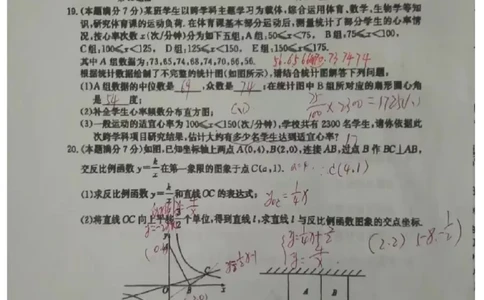 19.(本题满分7分)某班学生以跨学科主题学习为载体,综合运用体育、数学、生物学等知
识,研究体育课的运动负荷.在体育课基本部分运动后,测量统计了部分学生的心率情
况,按心率次数x(次/分钟)分为如下五组:A组:50≤x<75, B组:75≤x<100,
C组:100≤x<125, D组:125≤x<150, E组:150≤x≤175.
其中A组数据为:73,65,74,68,74,70,66,56.
根据统计数据绘制了不完整的统计图(如图所示),请结合统计图解答下列问题:
(1)A组数据的中位数是 69 ,众数是 74 ;在统计图中B组所对应的扇形圆心角
是 54 度;
(2)补全学生心率频数分布直方图;
(3)一般运动的适宜心率为100≤x<150(次/分钟),学校共有2300名学生,请你依据此
次跨学科项目研究结果,估计大约有多少名学生达到适宜心率?
20.(本题满分7分)如图,已知坐标轴上两点A(0,4),B(2,0),连接AB,过点B作BC⊥AB,
交反比例函数y=k/x在第一象限的图象于点C(a,1). a=4 ∴C(4,1)
(1)求反比例函数y=k/x和直线OC的表达式; y=1/4x
(2)将直线OC向上平移3/2个单位,得到直线l,求直线l与反比例函数图象的交点坐标.
(2,2) (-8,-1/2)
O B x
A B